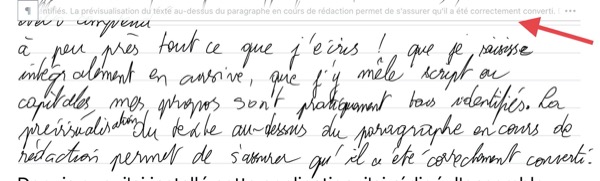 ¶ ntifiés. La prévisualisation du texte au-dessus du paragraphe en cours de rédaction permet de s'assurer qu'il a été correctement converti. ...
à peu près tout ce que j'écris ! que je saisisse
intégralement en cursive, que j'y mêle script ou
capitales mes propos sont pratiquement tous identifiés. La
prévisualisation du texte au-dessus du paragraphe en cours de
rédaction permet de s'assurer qu'il a été correctement converti.